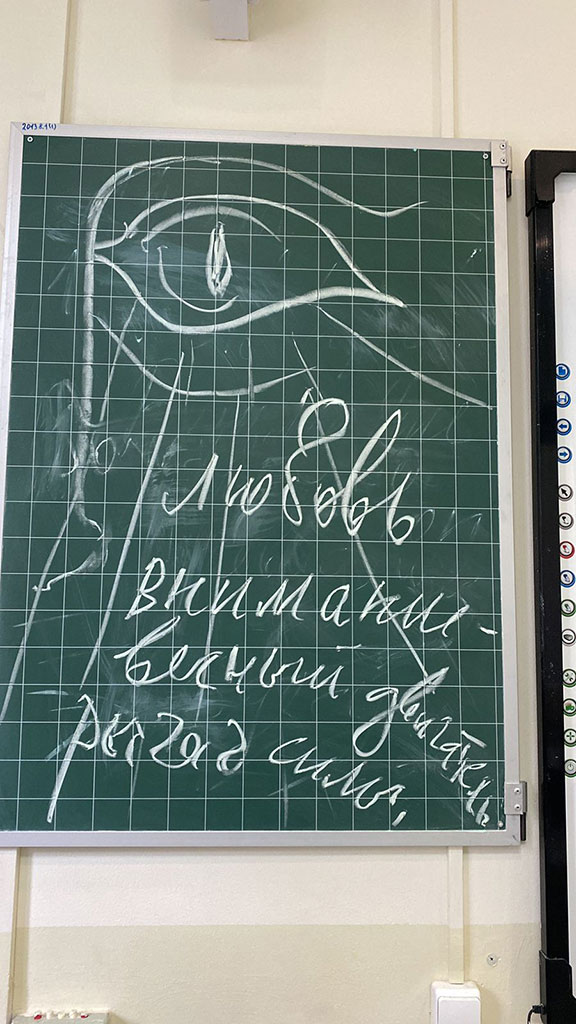 любовь
внимание-
вечный двигатель.
рычаг силы,